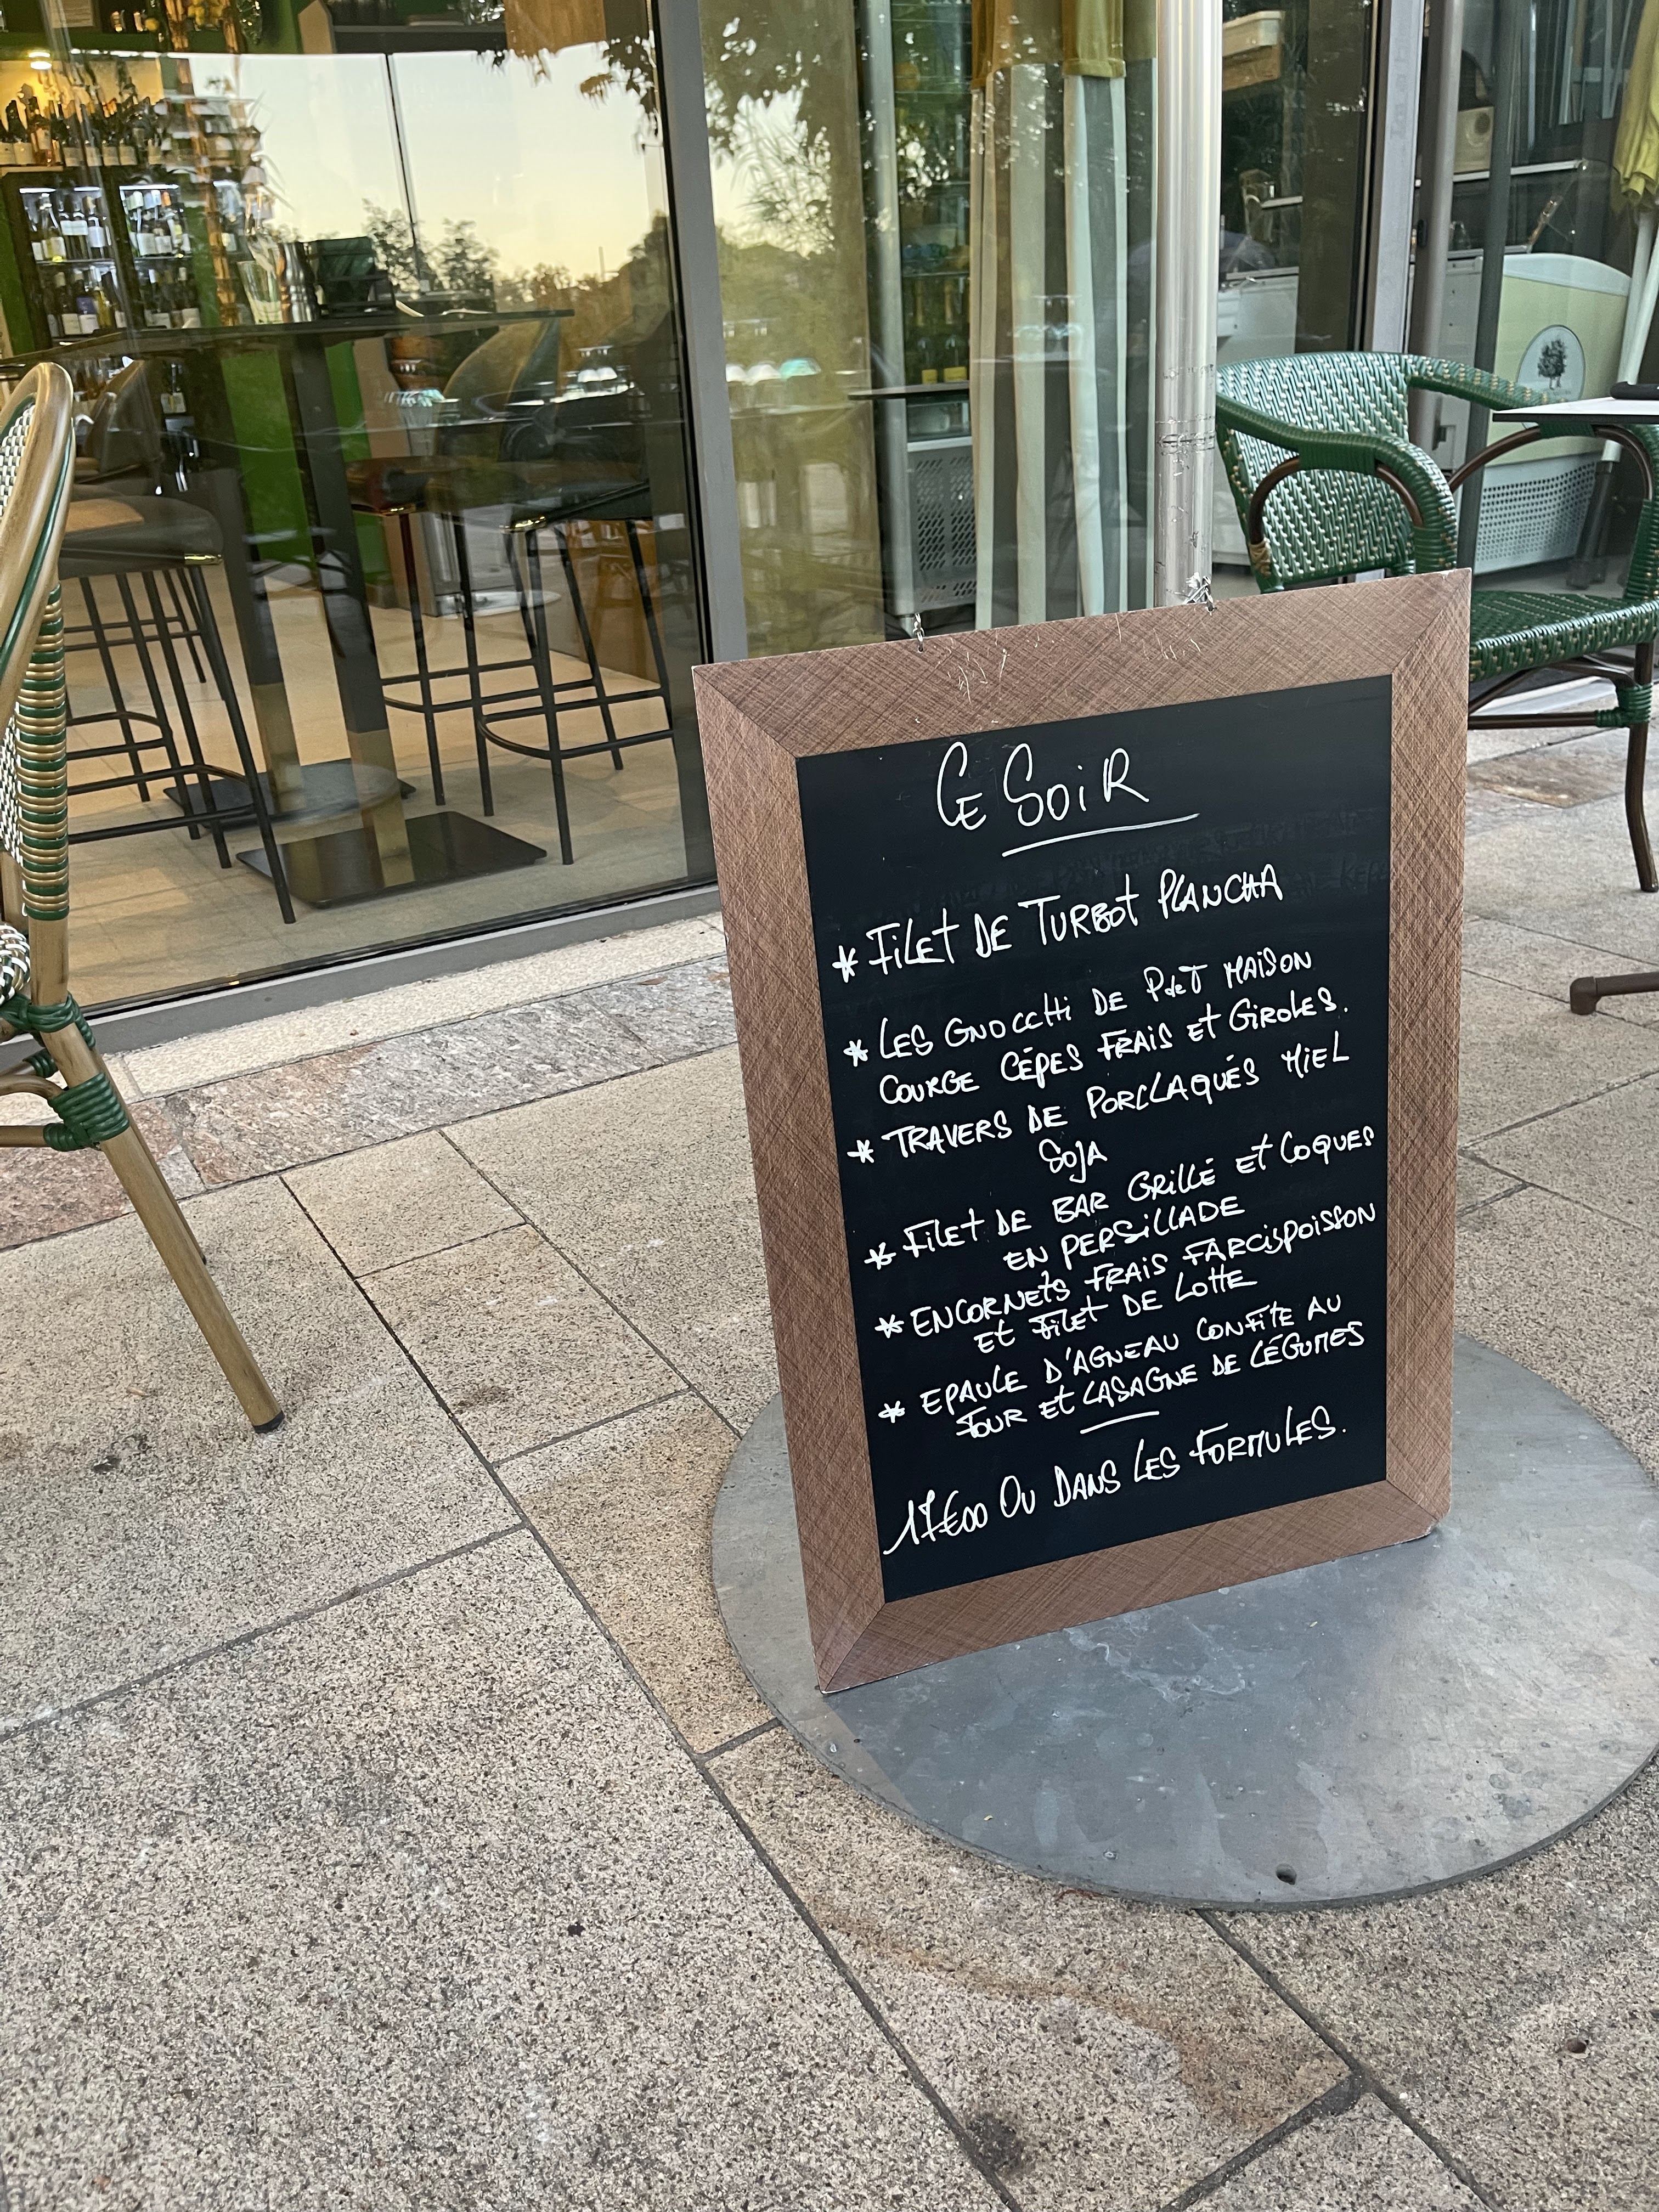 CE SOIR
* FILET DE TURBOT PLANCHA
* LES GNOCCHI DE PdeT MAISON
COURGE CÉPES FRAIS ET GIROLES.
* TRAVERS DE PORC LAQUÉS MIEL
SOJA
* FILET DE BAR GRILLÉ ET COQUES
EN PERSILLADE
* ENCORNETS FRAIS FARCIS POISSON
ET FILET DE LOTTE
* EPAULE D'AGNEAU CONFITE AU
FOUR ET LASAGNE DE LÉGUMES
17€00 OU DANS LES FORMULES.